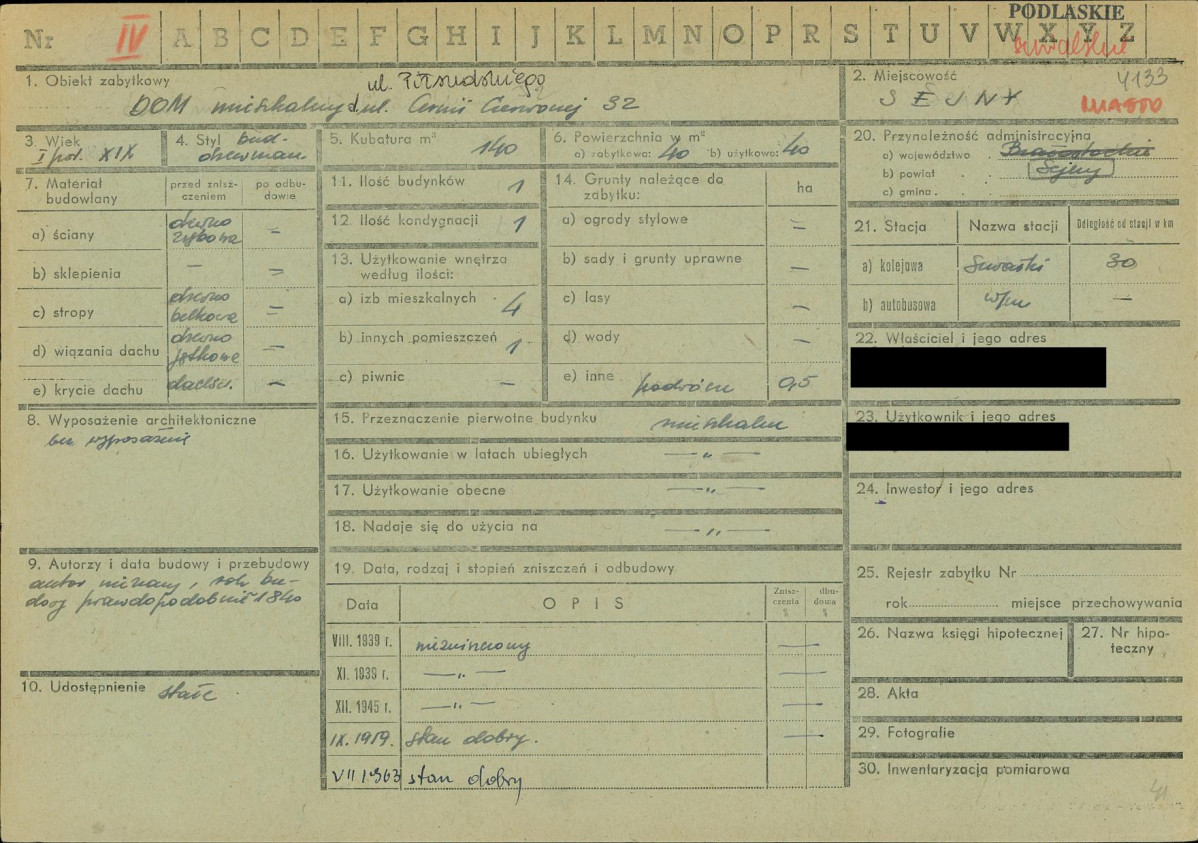 PODLASKIE
Nr IV A B C D E F G H I J K L M N O P R S T U V W X Y Z
suwalskie
1. Obiekt zabytkowy
ul. Piłsudskiego
DOM mieszkalny, ul. Armii Czerwonej 32
2. Miejscowość
4133
SEJNY
MIASTO
3. Wiek
I poł. XIX
4. Styl bud-
drewnian.
5. Kubatura m³
140
6. Powierzchnia w m²
a) zabytkowa: 40 b) użytkowa: 40
20. Przynależność administracyjna
a) województwo . Białostockie
b) powiat . . Sejny
c) gmina . . .
7. Materiał budowlany
przed znisz-
czeniem
po odbu-
dowie
a) ściany
drewno
zrębowa
=
b) sklepienia
—
=
c) stropy
drewno
belkowe
=
d) wiązania dachu
drewno
jętkowe
=
e) krycie dachu
=
11. Ilość budynków 1
12. Ilość kondygnacji 1
13. Użytkowanie wnętrza
według ilości:
a) izb mieszkalnych 4
b) innych pomieszczeń 1
c) piwnic —
14. Grunty należące do
zabytku:
ha
a) ogrody stylowe =
b) sady i grunty uprawne —
c) lasy —
d) wody —
e) inne podwórze 0,5
21. Stacja
Nazwa stacji
Odległość od stacji w km
a) kolejowa Suwałki 30
b) autobusowa w/m —
22. Właściciel i jego adres
23. Użytkownik i jego adres
24. Inwestor i jego adres
8. Wyposażenie architektoniczne
bez wyposażenia
15. Przeznaczenie pierwotne budynku mieszkalne
16. Użytkowanie w latach ubiegłych —„—
17. Użytkowanie obecne —„—
18. Nadaje się do użycia na —„—
9. Autorzy i data budowy i przebudowy
autor nieznany, rok bu-
dowy prawdopodobnie 1840
10. Udostępnienie stałe
19. Data, rodzaj i stopień zniszczeń i odbudowy
Data
OPIS
Znisz-
czenia
%
dbu-
dowa
%
VIII. 1939 r. niezniszczony —
XI. 1939 r. —„— —
XII. 1945 r. —„— —
IX. 1959. stan dobry. —
VII 1963 stan dobry
25. Rejestr zabytku Nr
rok miejsce przechowywania
26. Nazwa księgi hipotecznej
27. Nr hipo-
teczny
28. Akta
29. Fotografie
30. Inwentaryzacja pomiarowa